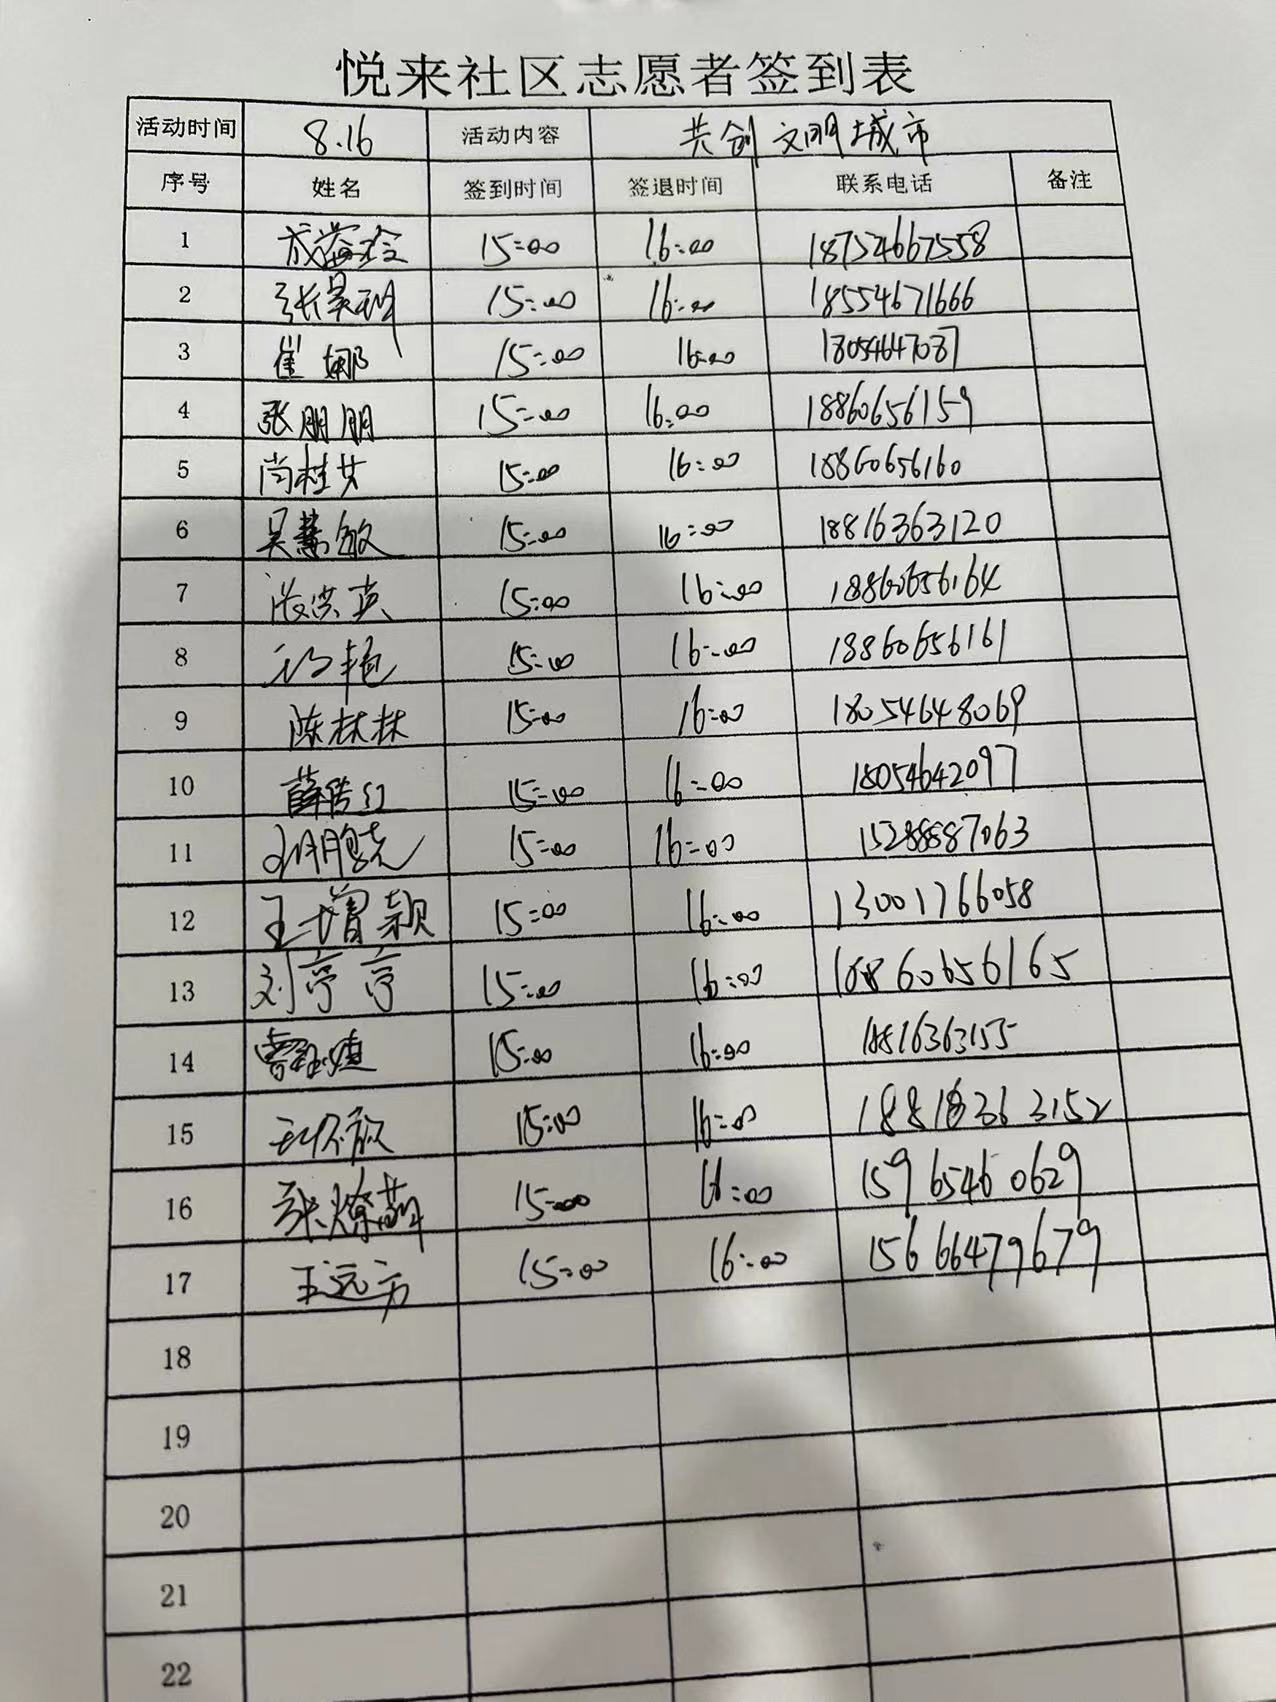 悦来社区志愿者签到表
活动时间 8.16 活动内容 共创文明城市
序号 姓名 签到时间 签退时间 联系电话 备注
1 15:00 16:00 187524667558
2 15:00 16:00 18554671666
3 崔娜 15:00 16:00 18054647087
4 张朋朋 15:00 16:00 18860656159
5 尚桂女 15:00 16:00 18860656160
6 吴慧敏 15:00 16:00 18816363120
7 张洪英 15:00 16:00 18860656164
8 15:00 16:00 18860656161
9 陈林林 15:00 16:00 18054648069
10 薛传红 15:00 16:00 18054642097
11 15:00 16:00 15288887063
12 王增颖 15:00 16:00 13001766058
13 刘亭亭 15:00 16:00 18860656165
14 15:00 16:00 18816363155
15 15:00 16:00
16 15:00 16:00 15965460629
17 王远方 15:00 16:00 15666479679
18
19
20
21
22